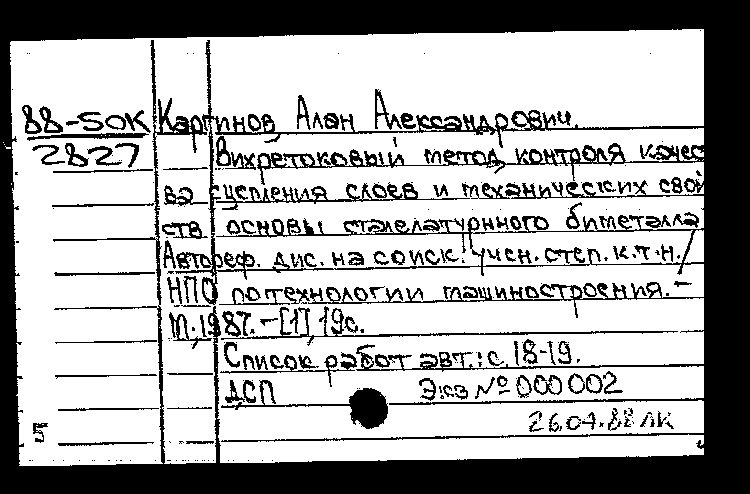 88-50К Каргинов, Алан Александрович.
2827 Вихретоковый метод контроля качес
ва сцепления слоев и механических свой
ств основы сталелатунного биметалла
Автореф. дис. на соиск. учен. степ. к.т.н./
НПО по технологии машиностроения. –
М., 1987. – [1], 19с.
Список работ авт.: с. 18-19.
ДСП Экз № 000002
26.04.88 ЛК
5